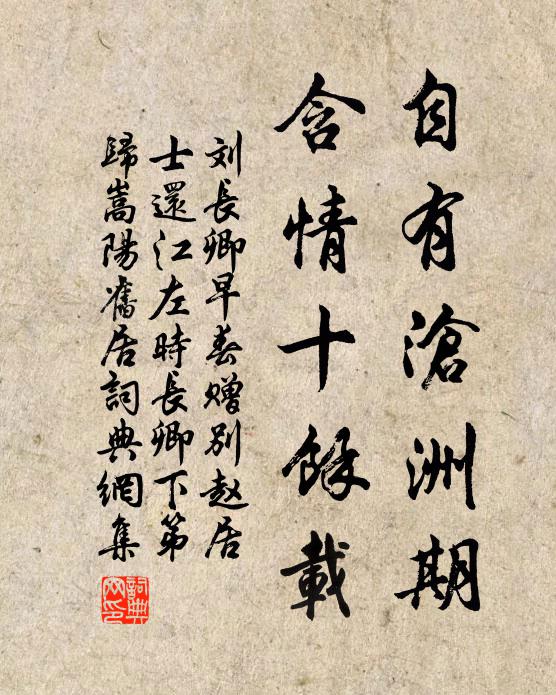 自有滄洲期
含情十餘載
刘長卿早春赠别赵居
士還江左時長卿下第
歸嵩陽舊居詞典網集
詞典網印